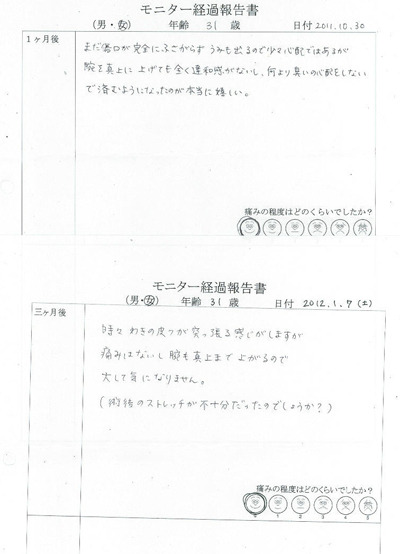 モニター経過報告書
(男・女) 年齢 31 歳 日付 2011.10.30
1ヶ月後
まだ傷口が完全にふさがらず うみも出るので少々心配ではあるが
腕を真上に上げても全く違和感がないし、何より臭いの心配をしない
で済むようになったのが本当に嬉しい。
痛みの程度はどのくらいでしたか?
モニター経過報告書
(男・女) 年齢 31 歳 日付 2012.1.7(土)
三ヶ月後
時々 わきの皮フが突っ張る感じがしますが
痛みはないし 腕も真上まで 上がるので
大して気になりません。
(術後のストレッチが不十分だったのでしょうか?)
痛みの程度はどのくらいでしたか?
0 1 2 3 4 5